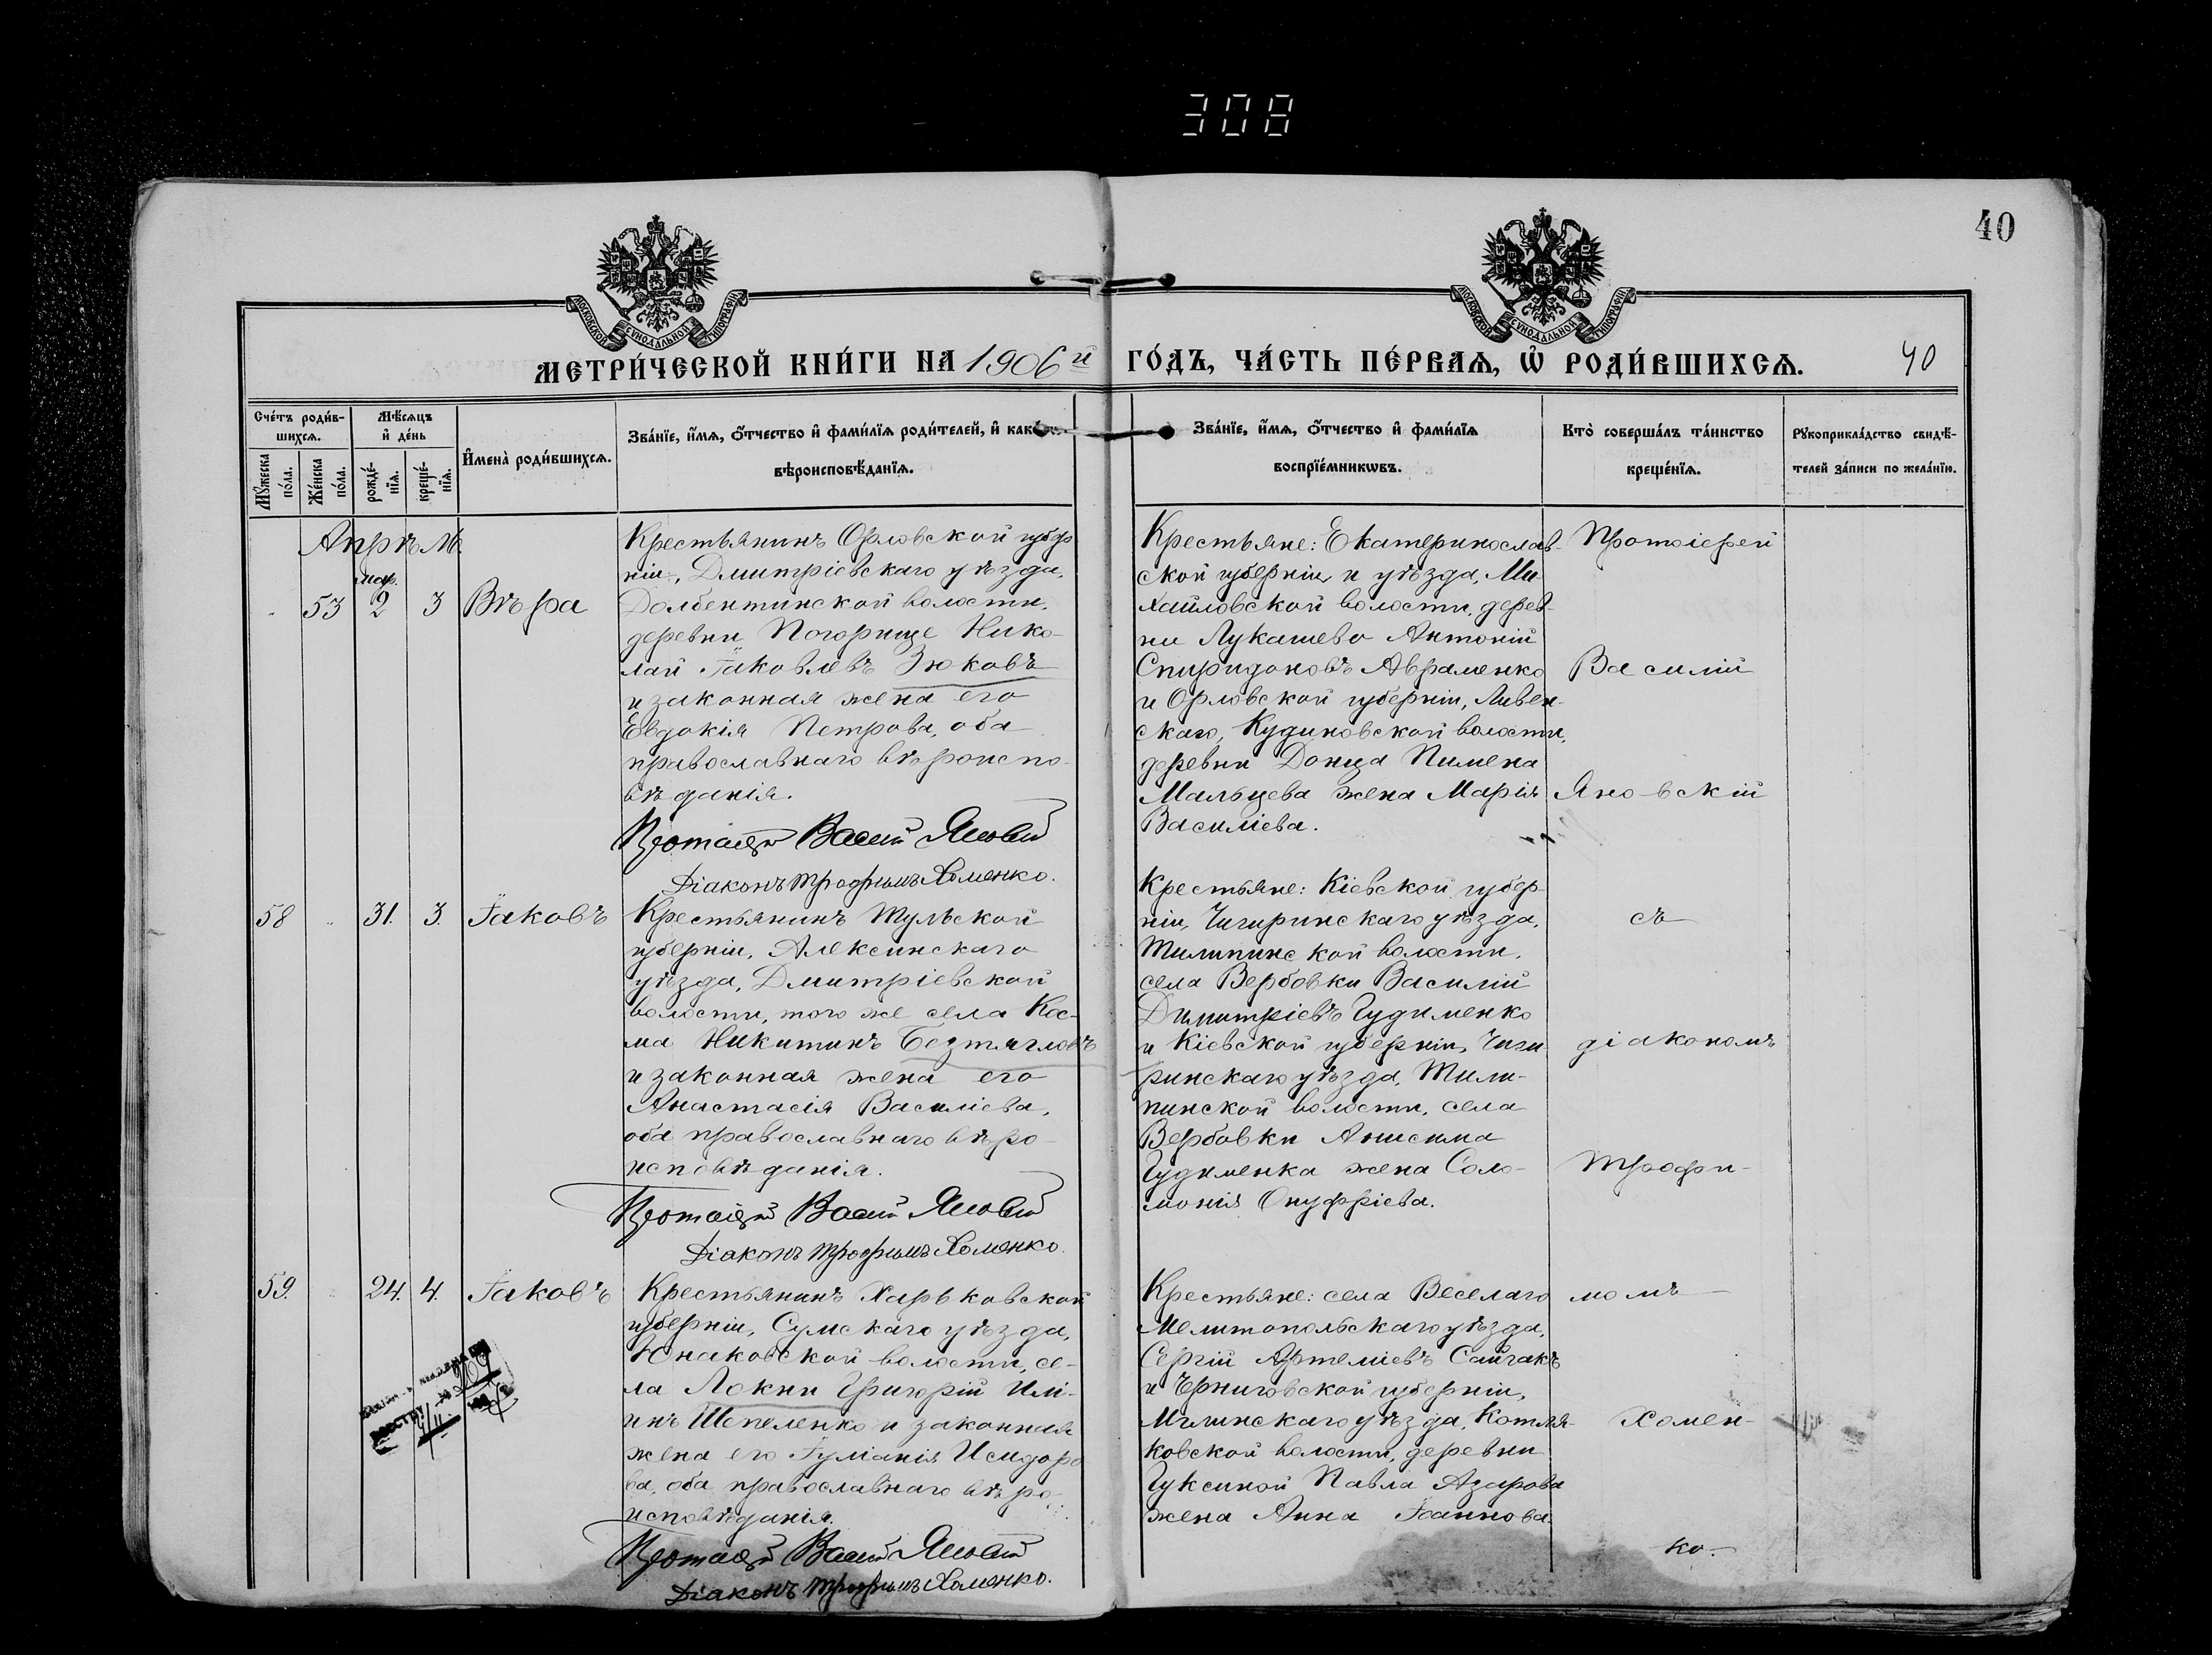 308
40
МОСКОВСКОЙ СѴНОДАЛЬНОЙ ТИПОГРАФІИ
МОСКОВСКОЙ СѴНОДАЛЬНОЙ ТИПОГРАФІИ
МЕТРИ́ЧЕСКОЙ КНИ́ГИ НА 1906й ГО́ДЪ, ЧА́СТЬ ПЕ́РВАѦ, Ѽ РОДИ́ВШИХСѦ. 40
Сче́тъ роди́в-
шихсѧ.
Мꙋ́жеска по́ла.
Же́нска по́ла.
Мѣ́сѧцъ и҆ де́нь
рожде́-нїѧ.
креще́-нїѧ.
И҆мена̀ роди́вшихсѧ.
Зва́нїе, и҆́мѧ, о҆́тчество и҆ фами́лїѧ роди́телей, и҆ како́гѡ
вѣроисповѣ́данїѧ.
Зва́нїе, и҆́мѧ, о҆́тчество и҆ фами́лїѧ
воспрїе́мникѡвъ.
Кто̀ соверша́лъ та́инство
креще́нїѧ.
Рꙋкоприкла́дство свидѣ́-
телей за́писи по жела́нїю.
Апрѣль.
мар.
53 2 3 Вѣра
Крестьянинъ Орловской губер
ніи, Дмитріевскаго уѣзда,
Долбентинской волости,
деревни Погорище Нико-
лай Іаковлевъ Зюковъ
и законная жена его
Евдокія Петрова, оба
православнаго вѣроиспо-
вѣданія.
Протоіерей Василій Яновскій
Діаконъ Трофимъ Хоменко.
Крестьяне: Екатеринослав-
ской губерніи и уѣзда, Ми-
хайловской волости, дерев-
ни Лукашево Антоній
Спиридоновъ Авраменко
и Орловской губерніи, Ливен-
скаго, Кудиновской волости,
деревни Донца Пимена
Мальцева жена Марія
Василіева.
58 31. 3. Іаковъ
Крестьянинъ Тульской
губерніи, Алексинскаго
уѣзда, Дмитріевской
волости, того же села Кос-
ма Никитинъ Безтягловъ
и законная жена его
Анастасія Василіева,
оба православнаго вѣро-
исповѣданія.
Протоіерей Василій Яновскій
Діаконъ Трофимъ Хоменко.
Крестьяне: Кіевской губер-
ніи, Чигиринскаго уѣзда,
Тилипинской волости,
села Вербовки Василій
Димитріевъ Гудименко
и Кіевской губерніи, Чиги-
ринскаго уѣзда, Тили-
пинской волости, села
Вербовки Анисима
Гудименка жена Соло-
монія Онуфріева.
59. 24. 4. Іаковъ
Крестьянинъ Харьковской
губерніи, Сумскаго уѣзда,
Юнаковской волости, се-
ла Локни Григорій Илі-
инъ Шепеленко и законная
жена его Іуліанія Исидоро
ва, оба православнаго вѣро-
исповѣданія.
Протоіерей Василій Яновскій
Діаконъ Трофимъ Хоменко.
Крестьяне: села Веселаго
Мелитопольскаго уѣзда,
Сергій Артеміевъ Сайгакъ
и Черниговской губерніи,
Мглинскаго уѣзда, Котля-
ковской волости, деревни
Гуксиной Павла Азарова
жена Анна Іоаннова.
Протоіерей
Василій
Яновскій
съ
діакономъ
Трофи-
момъ
Хомен-
ко.